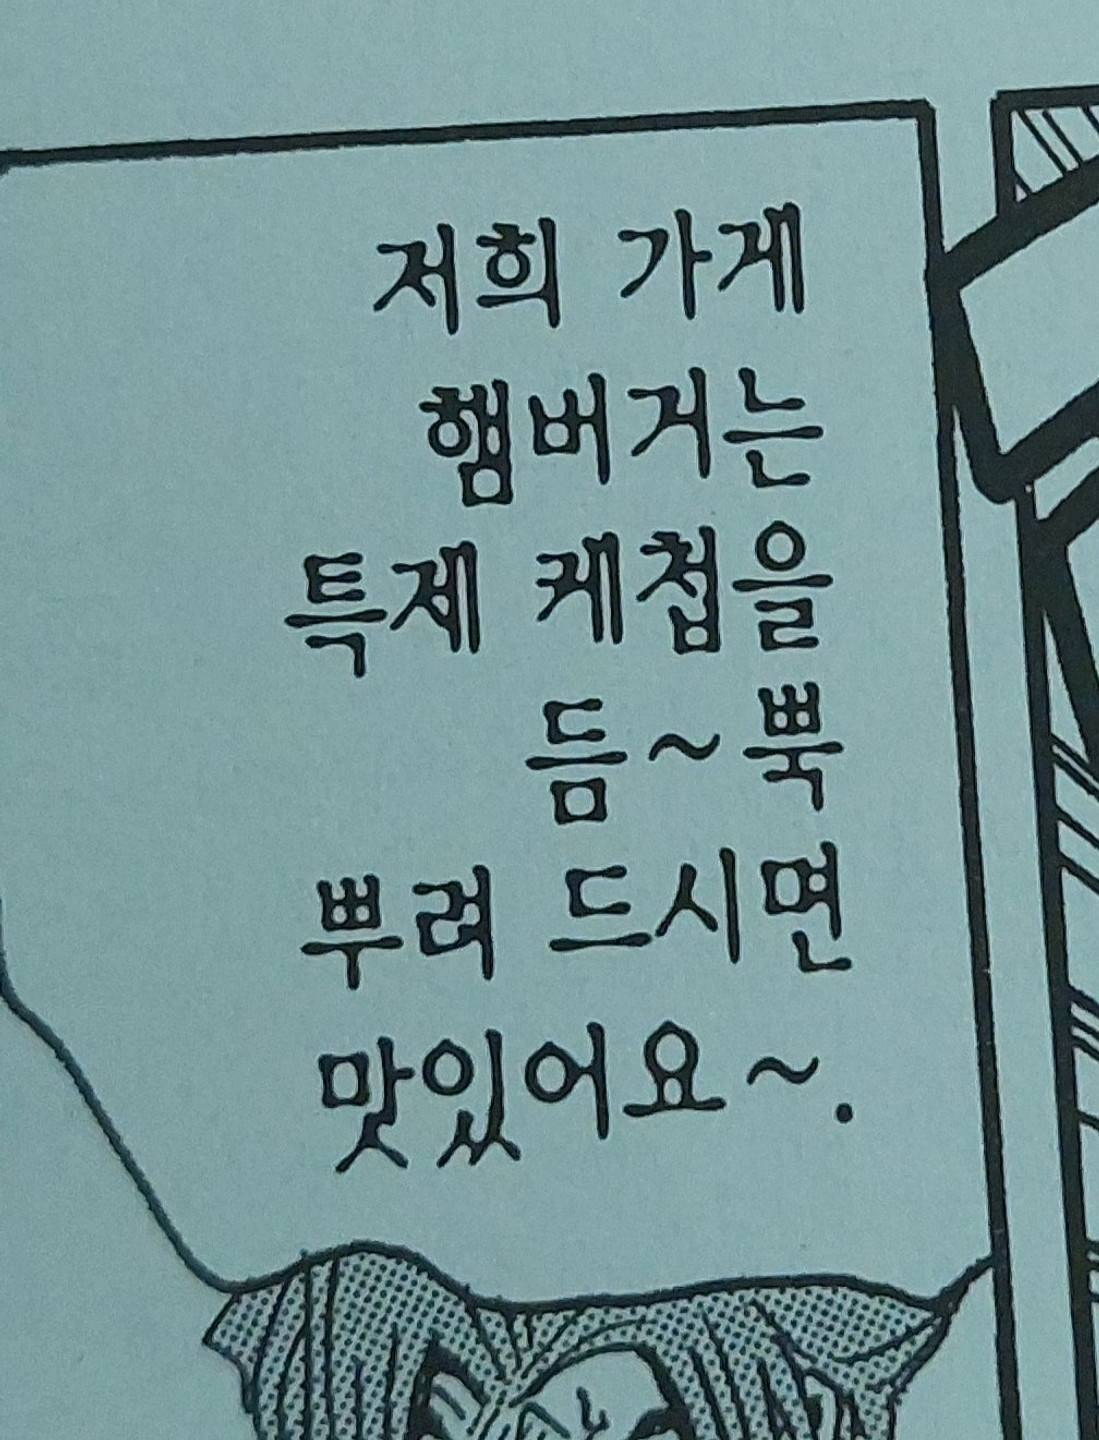 저희 가게
햄버거는
특제 케첩을
듬~뿍
뿌려 드시면
맛있어요~.